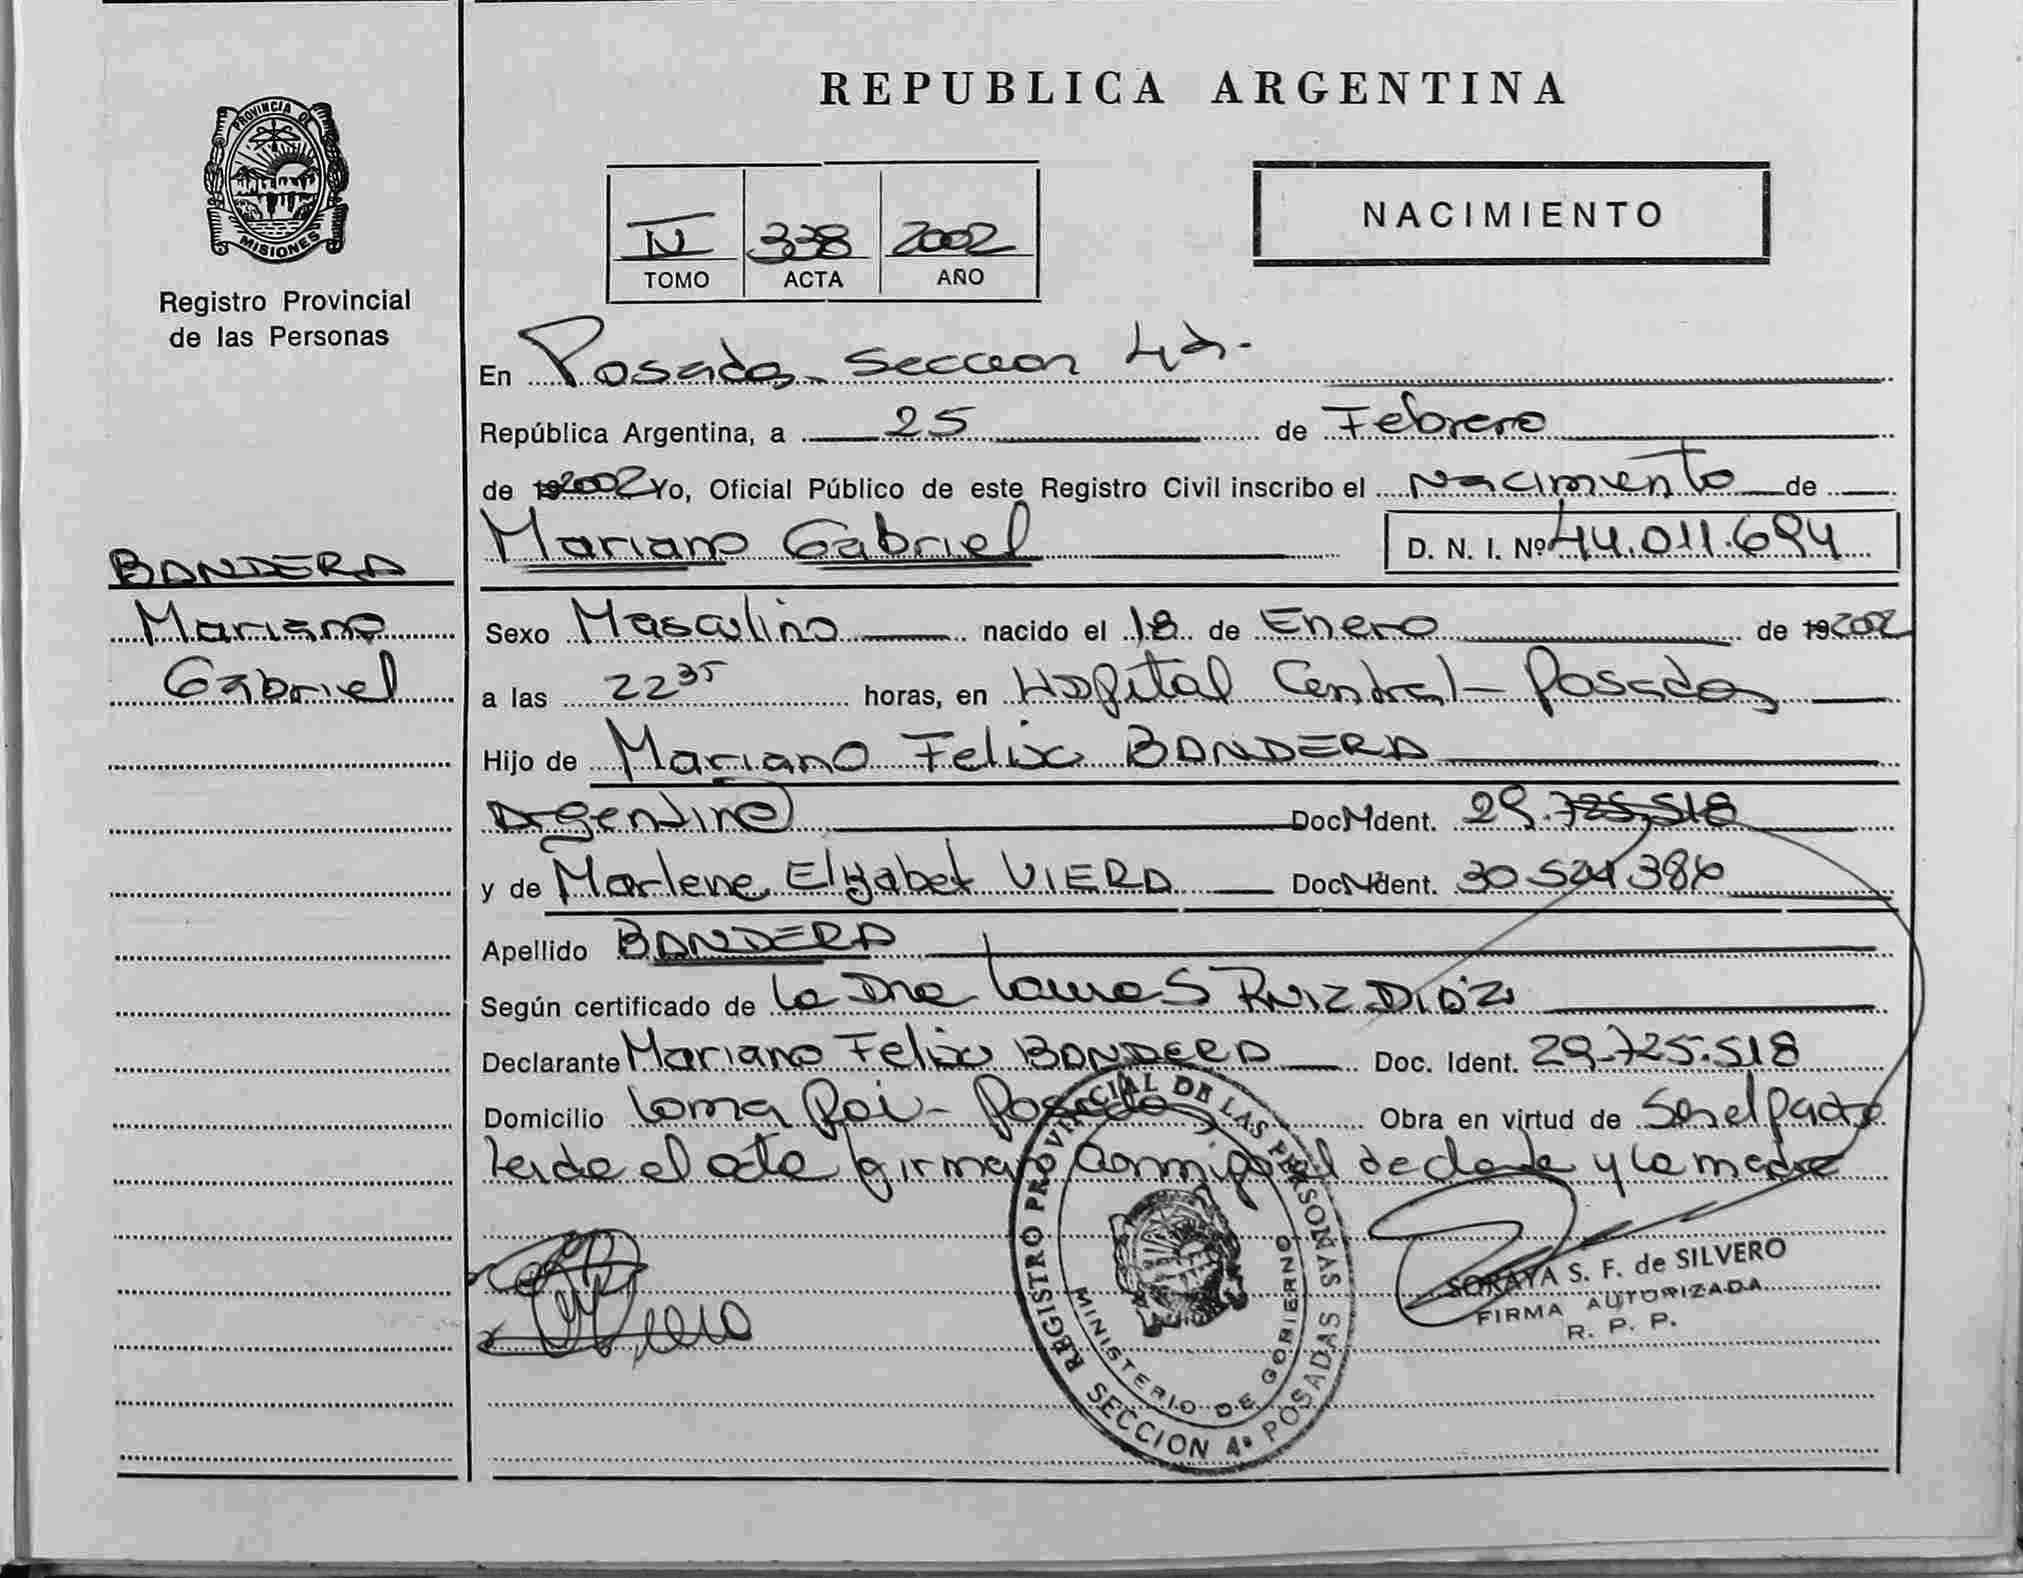 REPUBLICA ARGENTINA
PROVINCIA DE
MISIONES
Registro Provincial
de las Personas
NACIMIENTO
338 2002
TOMO ACTA AÑO
En Posadas Seccion 4ta.-
República Argentina, a 25 de Febrero
de 192002 Yo, Oficial Público de este Registro Civil inscribo el Nacimiento de
Mariano Gabriel D. N. I. Nº 44.011.694
BANDERA
Mariano
Gabriel
Sexo Masculino nacido el 18 de Enero de 192002
a las 22 35 horas, en Hospital Central - Posadas
Hijo de Mariano Felix BANDERA
Argentino Doc. Ident. 29.725.518
y de Marlene Elizabet VIERA Doc. Ident. 30.521.386
Apellido BANDERA
Según certificado de la Dra Laura S RUIZ DIAZ
Declarante Mariano Felix BANDERA Doc. Ident. 29.725.518
Domicilio Loma Poi - Posadas. Obra en virtud de Ser el padre
Leida el acta firman conmigo el declarante y la madre
REGISTRO PROVINCIAL DE LAS PERSONAS
MINISTERIO DE GOBIERNO
SECCION 4ª POSADAS
SORAYA S. F. de SILVERO
FIRMA AUTORIZADA
R. P. P.